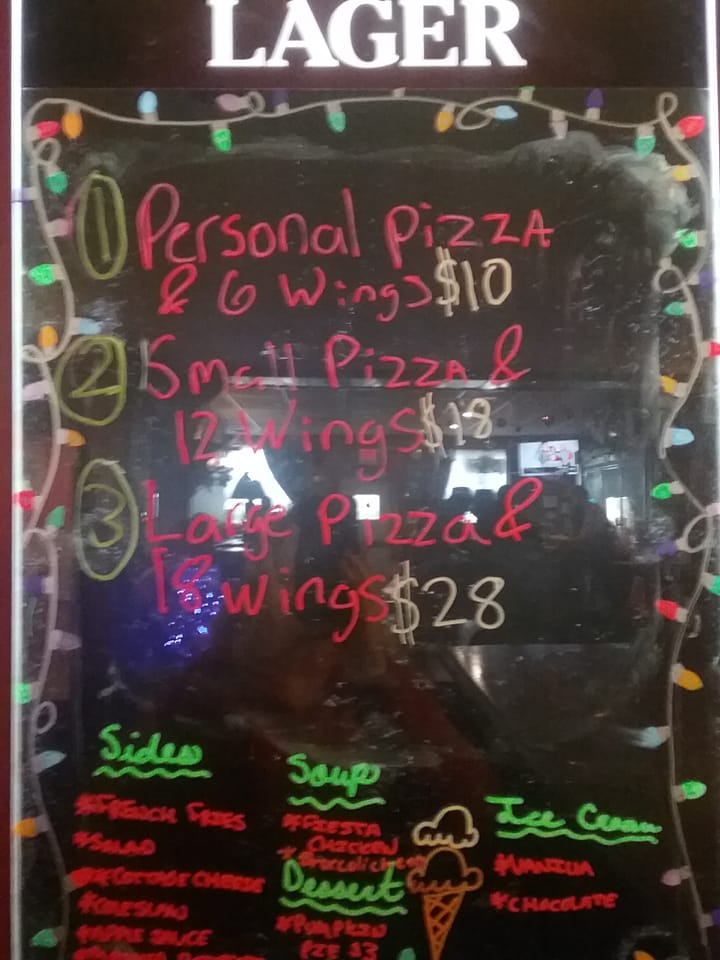 LAGER
1 Personal Pizza
& 6 Wings $10
2 Small Pizza &
12 Wings $18
3 Large Pizza &
18 Wings $28
Sides
*FRENCH FRIES
*SALAD
*COTTAGE CHEESE
*COLESLAW
*APPLE SAUCE
Soup
*FIESTA
CHICKEN
*Broccoli cheese
Dessert
*PUMPKIN
PIE $3
Ice Cream
*VANILLA
*CHOCOLATE